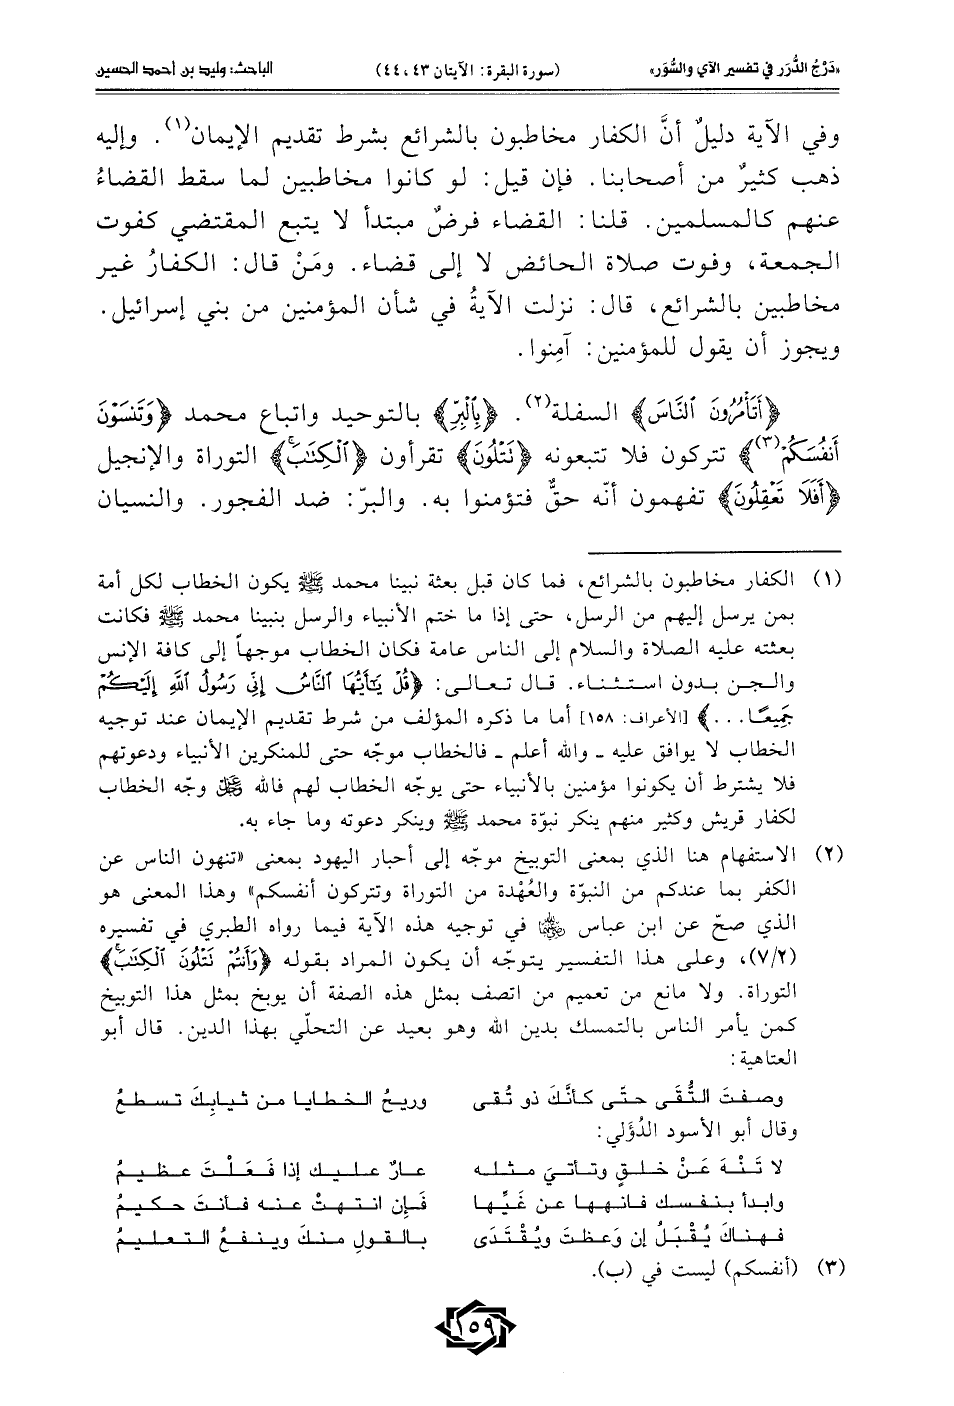 «دَرْجُ الدُّرَر في تفسير الآي والسُّوَر» (سورة البقرة: الآيتان ٤٣، ٤٤) الباحث: وليد بن أحمد الحسين
وفي الآية دليلٌ أنَّ الكفار مخاطبون بالشرائع بشرط تقديم الإيمان(١). وإليه
ذهب كثيرٌ من أصحابنا. فإن قيل: لو كانوا مخاطبين لما سقط القضاءُ
عنهم كالمسلمين. قلنا: القضاء فرضٌ مبتدأ لا يتبع المقتضي كفوت
الجمعة، وفوت صلاة الحائض لا إلى قضاء. ومَنْ قال: الكفارُ غير
مخاطبين بالشرائع، قال: نزلت الآيةُ في شأن المؤمنين من بني إسرائيل.
ويجوز أن يقول للمؤمنين: آمِنوا.
﴿أَتَأْمُرُونَ ٱلنَّاسَ﴾ السفلة(٢). ﴿بِٱلْبِرِّ﴾ بالتوحيد واتباع محمد ﴿وَتَنسَوْنَ
أَنفُسَكُمْ(٣)﴾ تتركون فلا تتبعونه ﴿تَتْلُونَ﴾ تقرأون ﴿ٱلْكِتَٰبَ﴾ التوراة والإنجيل
﴿أَفَلَا تَعْقِلُونَ﴾ تفهمون أنّه حقٌّ فتؤمنوا به. والبرّ: ضد الفجور. والنسيان
(١) الكفار مخاطبون بالشرائع، فما كان قبل بعثة نبينا محمد ﷺ يكون الخطاب لكل أمة
بمن يرسل إليهم من الرسل، حتى إذا ما ختم الأنبياء والرسل بنبينا محمد ﷺ فكانت
بعثته عليه الصلاة والسلام إلى الناس عامة فكان الخطاب موجهاً إلى كافة الإنس
والجن بدون استثناء. قال تعالى: ﴿قُلْ يَٰٓأَيُّهَا ٱلنَّاسُ إِنِّي رَسُولُ ٱللَّهِ إِلَيْكُمْ
جَمِيعًا...﴾ [الأعراف: ١٥٨] أما ما ذكره المؤلف من شرط تقديم الإيمان عند توجيه
الخطاب لا يوافق عليه - والله أعلم - فالخطاب موجّه حتى للمنكرين الأنبياء ودعوتهم
فلا يشترط أن يكونوا مؤمنين بالأنبياء حتى يوجّه الخطاب لهم فالله ﷻ وجّه الخطاب
لكفار قريش وكثير منهم ينكر نبوّة محمد ﷺ وينكر دعوته وما جاء به.
(٢) الاستفهام هنا الذي بمعنى التوبيخ موجّه إلى أحبار اليهود بمعنى «تنهون الناس عن
الكفر بما عندكم من النبوّة والعُهْدة من التوراة وتتركون أنفسكم» وهذا المعنى هو
الذي صحّ عن ابن عباس ﵄ في توجيه هذه الآية فيما رواه الطبري في تفسيره
(٧/٢)، وعلى هذا التفسير يتوجّه أن يكون المراد بقوله ﴿وَأَنتُمْ تَتْلُونَ ٱلْكِتَٰبَ﴾
التوراة. ولا مانع من تعميم من اتصف بمثل هذه الصفة أن يوبخ بمثل هذا التوبيخ
كمن يأمر الناس بالتمسك بدين الله وهو بعيد عن التحلّي بهذا الدين. قال أبو
العتاهية:
وصفتَ التُّقَى حتّى كأنَّكَ ذو تُقى وريحُ الخطايا من ثيابِكَ تسطعُ
وقال أبو الأسود الدُؤَلي:
لا تَنْهَ عَنْ خلقٍ وتأتيَ مثله عارٌ عليك إذا فَعَلْتَ عظيمُ
وابدأ بنفسك فانهها عن غَيِّها فَإن انتهتْ عنه فأنتَ حكيمُ
فهناكَ يُقْبَلُ إن وَعظتَ ويُقْتَدَى بالقولِ منكَ وينفعُ التعليمُ
(٣) (أنفسكم) ليست في (ب).
١٥٩